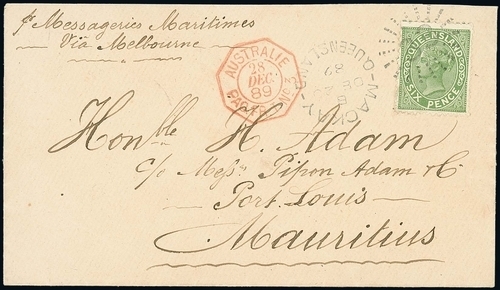 pr Messageries Maritimes
Via Melbourne
AUSTRALIE
28
DEC.
89
PAQ. FR. No 3
MACKAY
QUEENSLAND
89
QUEENSLAND
SIX PENCE
Honble H. Adam
c/o Messrs Pipon Adam & C
Port Louis
Mauritius